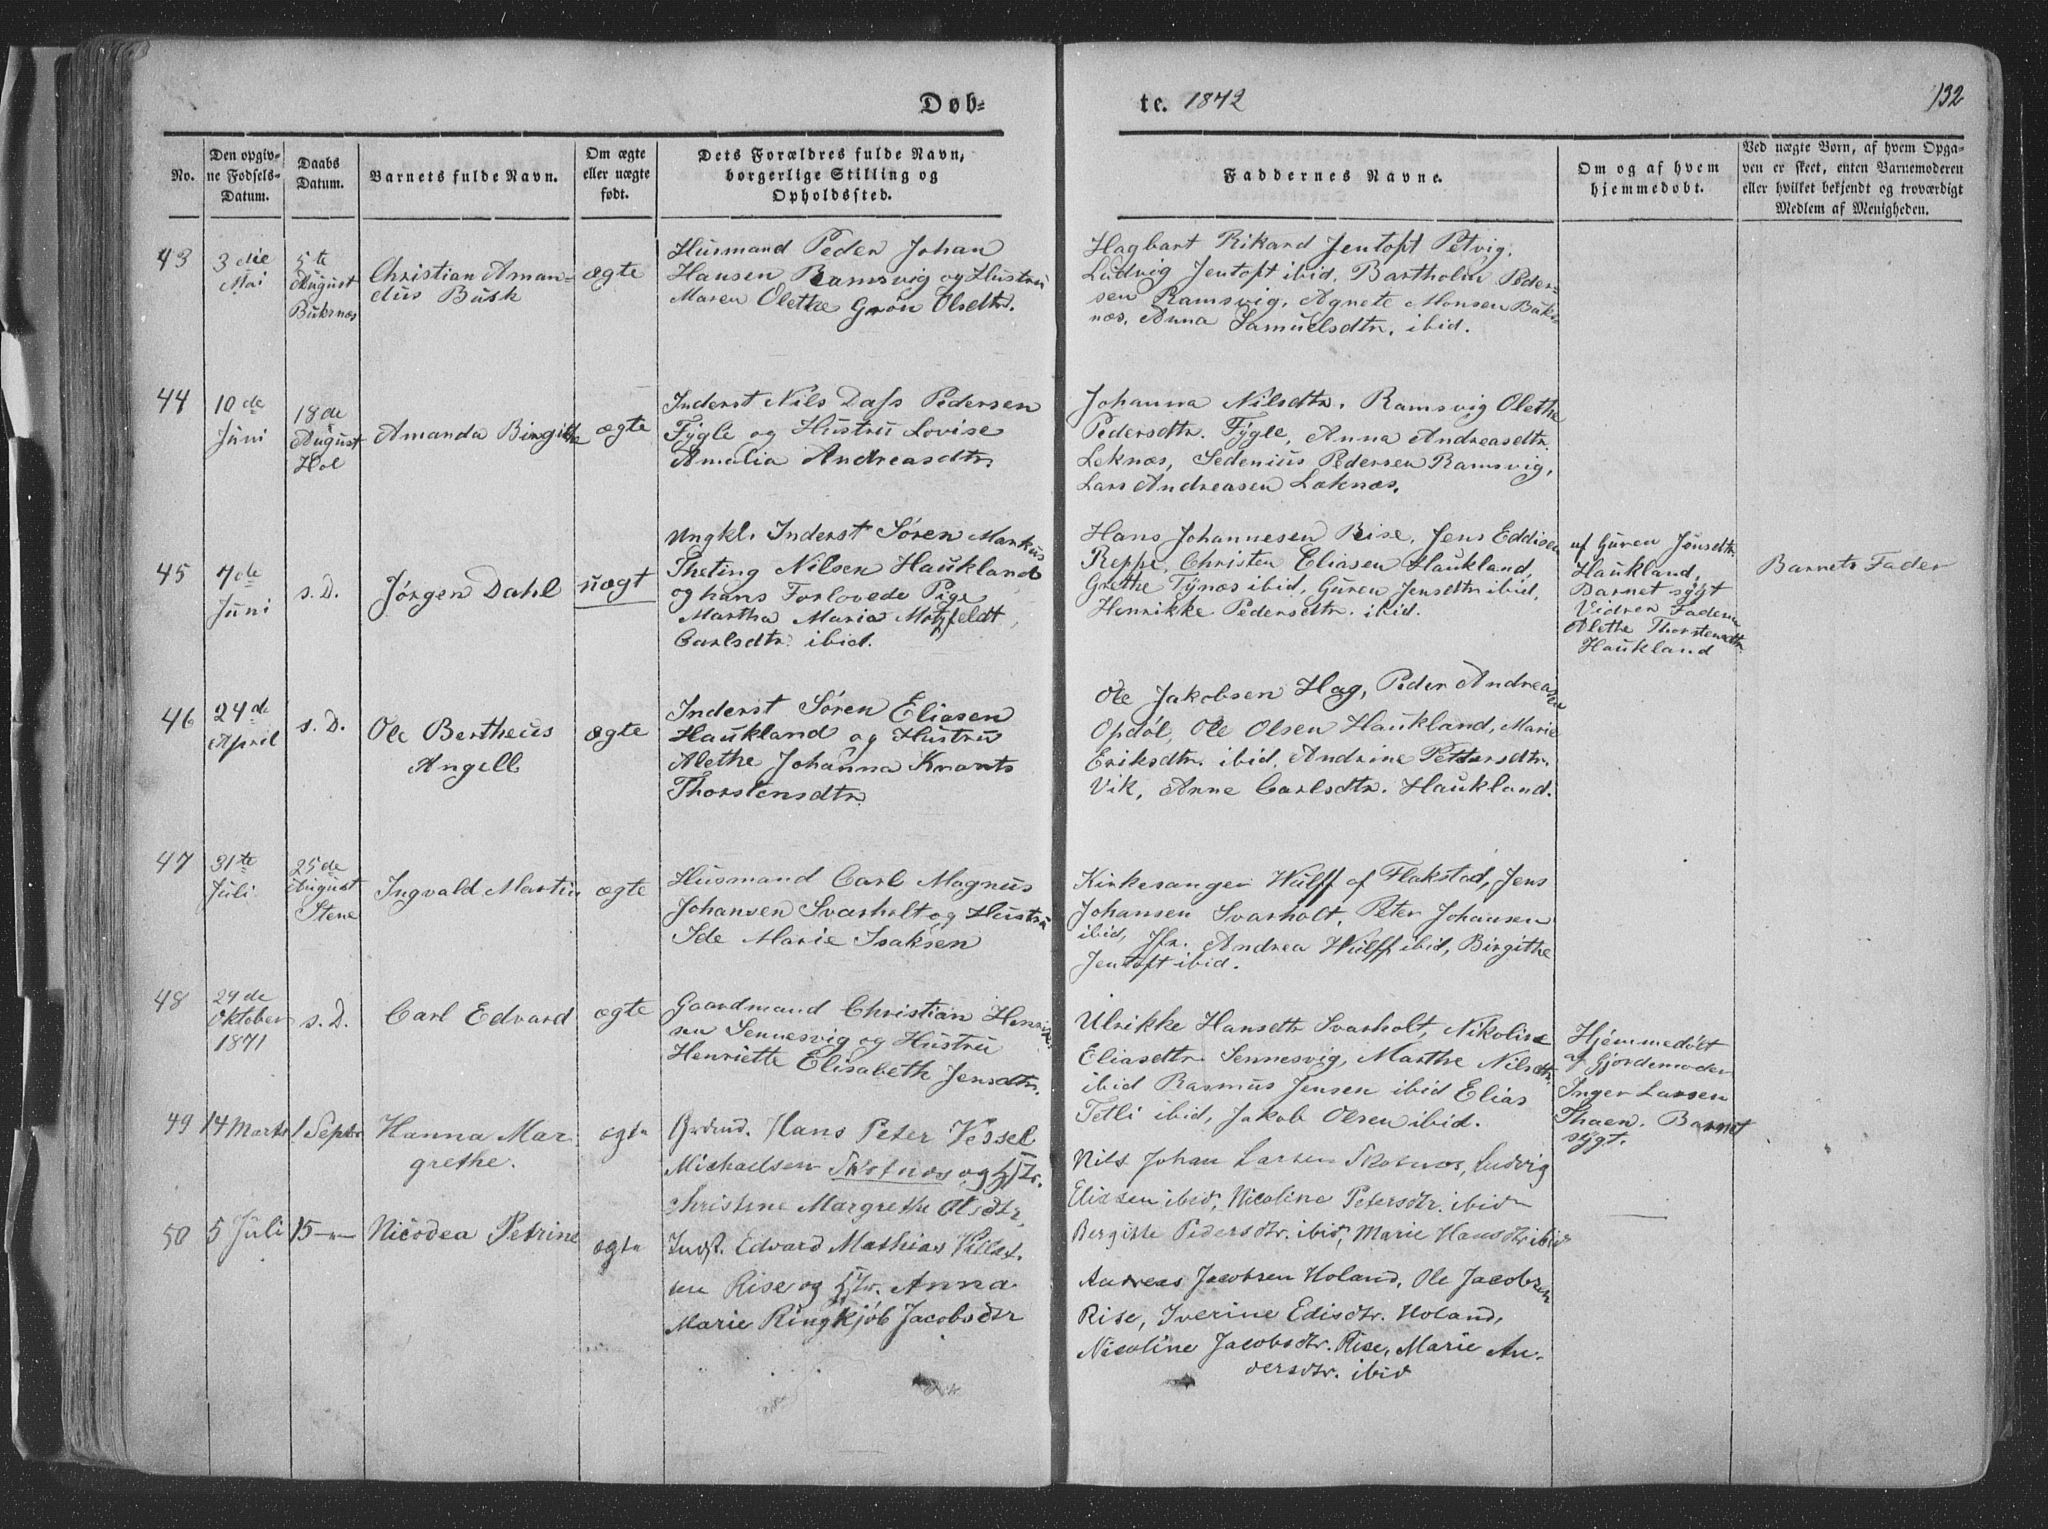 Døb=
te. 1872
132
No.
Den opgiv-
ne Fødsels-
Datum.
Daabs
Datum.
Barnets fulde Navn.
Om ægte
eller uægte
født.
Dets Forældres fulde Navn,
borgerlige Stilling og
Opholdssted.
Faddernes Navne.
Om og af hvem
hjemmedøbt.
Ved uægte Børn, af hvem Opga-
ven er skeet, enten Barnemoderen
eller hvilket bekjendt og troværdigt
Medlem af Menigheden.
43
3die
Mai
5te
August
Buksnæs
Christian Aman-
dus Busk
ægte
Husmand Peder Johan
Hansen Ramsvig og Hustru
Maren Olethe Grøn Olsdtr.
Hagbart Rikard Jentoft Petvig,
Ludvig Jentoft ibid. Bartholin Peder-
sen Ramsvig, Agnete Monsen Buks
næs, Anna Samuelsdtr. ibid.
44
10de
Juni
18de
August
Hol
Amanda Birgitte
ægte
Inderst Nils Dass Pedersen
Fygle og Hustru Lovise
Amalia Andreasdtr
Johanna Nilsdtr. Ramsvig Olethe
Pedersdtr. Fygle, Anna Andreasdtr.
Leknæs, Sedenius Pedersen Ramsvig,
Lars Andreasen Leknæs.
45
7de
Juni
s. D.
Jørgen Dahl
uægt
Ungkl. Inderst Søren Markus
Theting Nilsen Haukland
og hans Forlovede Pige
Martha Maria Motzfeldt
Carlsdtr. ibid.
Hans Johannesen Reise, Jens Eddisen
Reppe, Christen Eliasen Haukland,
Grethe Tynæs ibid, Guren Jensdtr ibid,
Henrikke Pedersdtr. ibid.
af Guren Jensdtr
Haukland,
Barnet sygt
Vidner Faderen
Alethe Thorstensdtr
Haukland
Barnets Fader
46
24de
April
s. D.
Ole Bertheus
Angell
ægte
Inderst Søren Eliasen
Haukland og Hustru
Alethe Johanna Knarts
Thorstensdtr
Ole Jakobsen Hag, Peder Andreasen
Opdøl, Ole Olsen Haukland, Marie
Eriksdtr. ibid, Andrine Pettersdtr.
Vik, Anne Carlsdtr. Haukland.
47
31te
Juli
25de
August
Stene
Ingvald Martin
ægte
Husmand Carl Magnus
Johansen Svarholt og Hustru
Ide Marie Isaksen
Kirkesanger Wulff af Flakstad, Jens
Johansen Svarholt, Peter Johansen
ibid, Jfr. Andrea Wulff ibid, Birgithe
Jentoft ibid.
48
29de
Oktober
1871
s. D.
Carl Edvard
ægte
Gaardmand Christian Henrik-
sen Sennesvig og Hustru
Henriette Elisabeth Jensdtr.
Ulrikke Hansdtr Svarholt, Nikoline
Eliasdtr. Sennesvig, Marthe Nilsdtr.
ibid Rasmus Jensen ibid Elias
Tetli ibid, Jakob Olsen ibid.
Hjemmedøbt
af Gjordemoder
Inger Larsen
Thaen. Barnet
sygt.
49
14 Marts
1 Septr
Hanna Mar
grethe.
ægte
Grdmd. Hans Peter Vessel
Michaelsen Skotnæs og Hstr.
Christine Margrethe Olsdtr,
Nils Johan Larsen Skotnæs, Ludvig
Eliasen ibid, Nicoline Petersdtr. ibid
Bergitte Pedersdtr. ibid, Marie Hansdtr ibid
50
5 Juli
15 —
Nicodea Petrine
ægte
Indst. Edvard Mathias
Rise og Hstr. Anna
Marie Ringkjöb Jacobsdtr
Andreas Jacobsen Holand, Ole Jacobsen
Rise, Iverine Edisdtr. Holand,
Nicoline Jacobsdtr. Rise, Marie An-
dersdtr. ibid